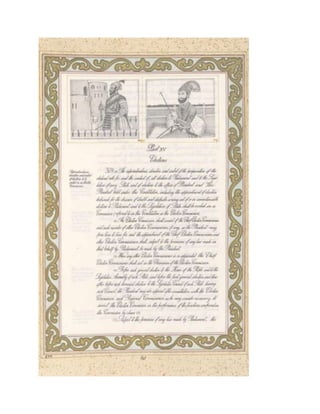 Part XV
Elections
Superintendence,
direction and control
of elections to be
vested in an Election
Commission.
324. (1) The superintendence, direction and control of the preparation of the
electoral rolls for, and the conduct of, all elections to Parliament and to the Legis-
lature of every State and of elections to the offices of President and Vice-
President held under this Constitution, including the appointment of election
tribunals for the decision of doubts and disputes arising out of or in connection with
elections to Parliament and to the Legislatures of States shall be vested in a
Commission (referred to in this Constitution as the Election Commission).
(2) The Election Commission shall consist of the Chief Election Commissioner
and such number of other Election Commissioners, if any, as the President may
from time to time fix and the appointment of the Chief Election Commissioner and
other Election Commissioners shall, subject to the provisions of any law made in
that behalf by Parliament, be made by the President.
(3) When any other Election Commissioner is so appointed the Chief
Election Commissioner shall act as the Chairman of the Election Commission.
(4) Before each general election to the House of the People and to the
Legislative Assembly of each State, and before the first general election and there-
after before each biennial election to the Legislative Council of each State having
such Council, the President may also appoint after consultation with the Election
Commission such Regional Commissioners as he may consider necessary to
assist the Election Commission in the performance of the functions conferred on
the Commission by clause (1).
(5) Subject to the provisions of any law made by Parliament, the